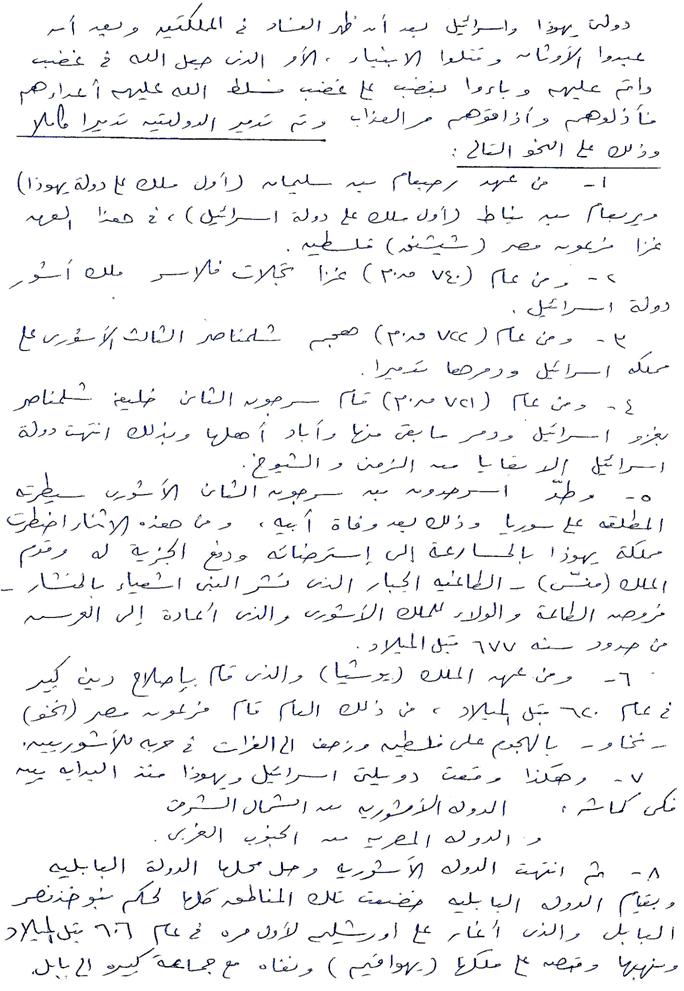 دولتى يهوذا واسرائيل بعد أن ظهر الفساد فى المملكتين وبعد أن
عبدوا الأوثان وقتلوا الأنبياء ، الأمر الذى جعل الله فى غضب
دائم عليهم وباءوا بغضب على غضب فسلط الله عليهم أعداءهم
فأذلوهم وأذاقوهم مر العذاب وتم تدمير الدولتين تدميرا كاملا
وذلك على النحو التالى :
١- فى عهد رحبعام بن سليمان (أول ملك على دولة يهوذا)
ويربعام بن نباط (أول ملك على دولة اسرائيل) ، فى هذا العهد
غزا فرعون مصر (شيشنق) فلسطين .
٢- وفى عام (٧٤٠ ق.م) غزا تجلات فلاسر ملك أشور
دولة اسرائيل .
٣- وفى عام (٧٢٢ ق.م) هجم شلمناصر الثالث الأشورى على
مملكه اسرائيل ودمرها تدميرا .
٤- وفى عام (٧٢١ ق.م) قام سرجون الثانى خليفة شلمناصر
بغزو اسرائيل ودمر ما بقى منها وأباد أهلها وبذلك انتهت دولة
اسرائيل الا بقايا من الزمن والشيوخ .
٥- وطدّ اسرحدون بن سرجون الثانى الأشورى سيطرته
المطلقه على سوريا وذلك بعد وفاة أبيه ، وفى هذه الاثناء اضطرت
مملكة يهوذا بالمسارعة إلى إسترضائه ودفع الجزية له وقدم
الملك (منسّى) - الطاغيه الجبار الذى نشر النبى اشعياء بالمنشار -
فروض الطاعة والولاء للملك الأشورى والذى أعاده إلى العرش
فى حدود سنه ٦٧٧ قبل الميلاد .
٦- وفى عهد الملك (يوشيا) والذى قام بإصلاح دينى كبير
فى عام ٦٢٠ قبل الميلاد ، فى ذلك العام قام فرعون مصر (نخو)
- نخاو - بالهجوم على فلسطين وزحف الى الفرات فى حربه للأشوريين .
٧- وهكذا وقعت دويلتى اسرائيل ويهوذا منذ البدايه بين
فكى كماشه ، الدوله الأشوريه من الشمال الشرقى
و الدوله المصريه من الجنوب الغربى .
٨- ثم انتهت الدوله الأشوريه وحل محلها الدولة البابليه
وبقيام الدوله البابليه خضعت تلك المناطق كلها لحكم نبوخذنصر
البابلى والذى أغار على اورشليم لأول مره فى عام ٦٠٦ قبل الميلاد
ونهبها وقبض على ملكها (يهواقيم) ونفاه مع جماعة كبيره الى بابل .